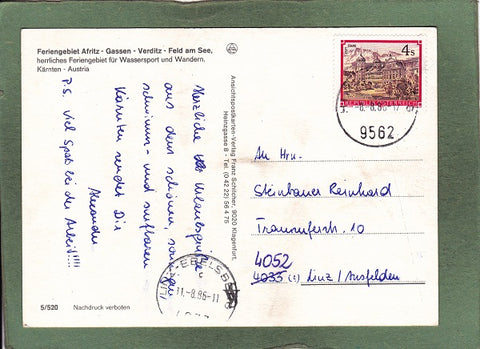 Feriengebiet Afritz - Gassen - Verditz - Feld am See,
herrliches Feriengebiet für Wassersport und Wandern.
Kärnten - Austria
Herzliche Urlaubsgrüße
aus dem schönen, sonnigen
schwimm- und surfbaren
Kärnten sendet Dir
Alexander
P.S. viel Spaß bei der Arbeit!!!!
5/520 Nachdruck verboten
Ansichtspostkarten-Verlag Franz Schilcher, 9020 Klagenfurt,
Heinzgasse 8 - Tel. (0 42 22) 56 4 75
4 S
REPUBLIK ÖSTERREICH
-8. 8. 86-17
9562
An Hrn.
Steinbauer Reinhard
Traunuferstr. 10
4052
4033 Linz / Ansfelden
EBELSBERG
11.-8.86-11